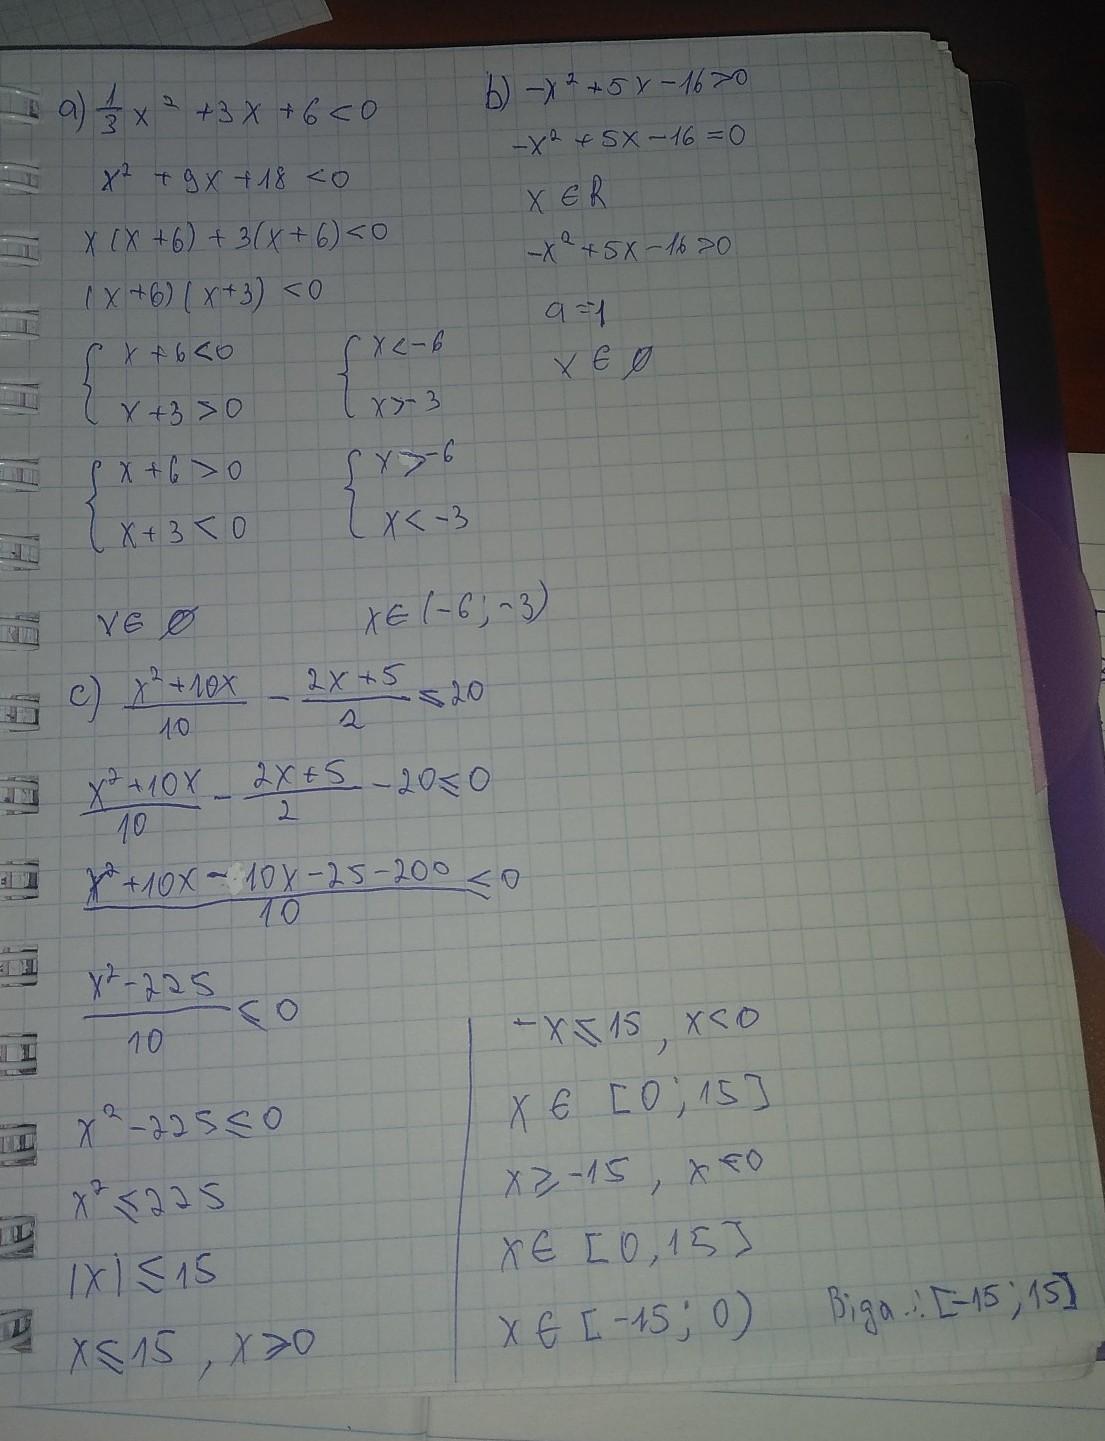 a) 1/3 x² + 3x + 6 < 0
x² + 9x + 18 < 0
x(x + 6) + 3(x + 6) < 0
(x + 6)(x + 3) < 0
{ x + 6 < 0 { x < -6
{ x + 3 > 0 { x > -3
{ x + 6 > 0 { x > -6
{ x + 3 < 0 { x < -3
x ∈ ∅ x ∈ (-6; -3)
b) -x² + 5x - 16 > 0
-x² + 5x - 16 = 0
x ∈ R
-x² + 5x - 16 > 0
a = -1
x ∈ ∅
c) (x² + 10x)/10 - (2x + 5)/2 ≤ 20
(x² + 10x)/10 - (2x + 5)/2 - 20 ≤ 0
(x² + 10x - 10x - 25 - 200)/10 ≤ 0
(x² - 225)/10 ≤ 0
x² - 225 ≤ 0
x² ≤ 225
|x| ≤ 15
x ≤ 15, x ≥ 0
-x ≤ 15, x < 0
x ∈ [0; 15]
x ≥ -15, x < 0
x ∈ [0, 15]
x ∈ [-15; 0)
Biga.: [-15; 15]